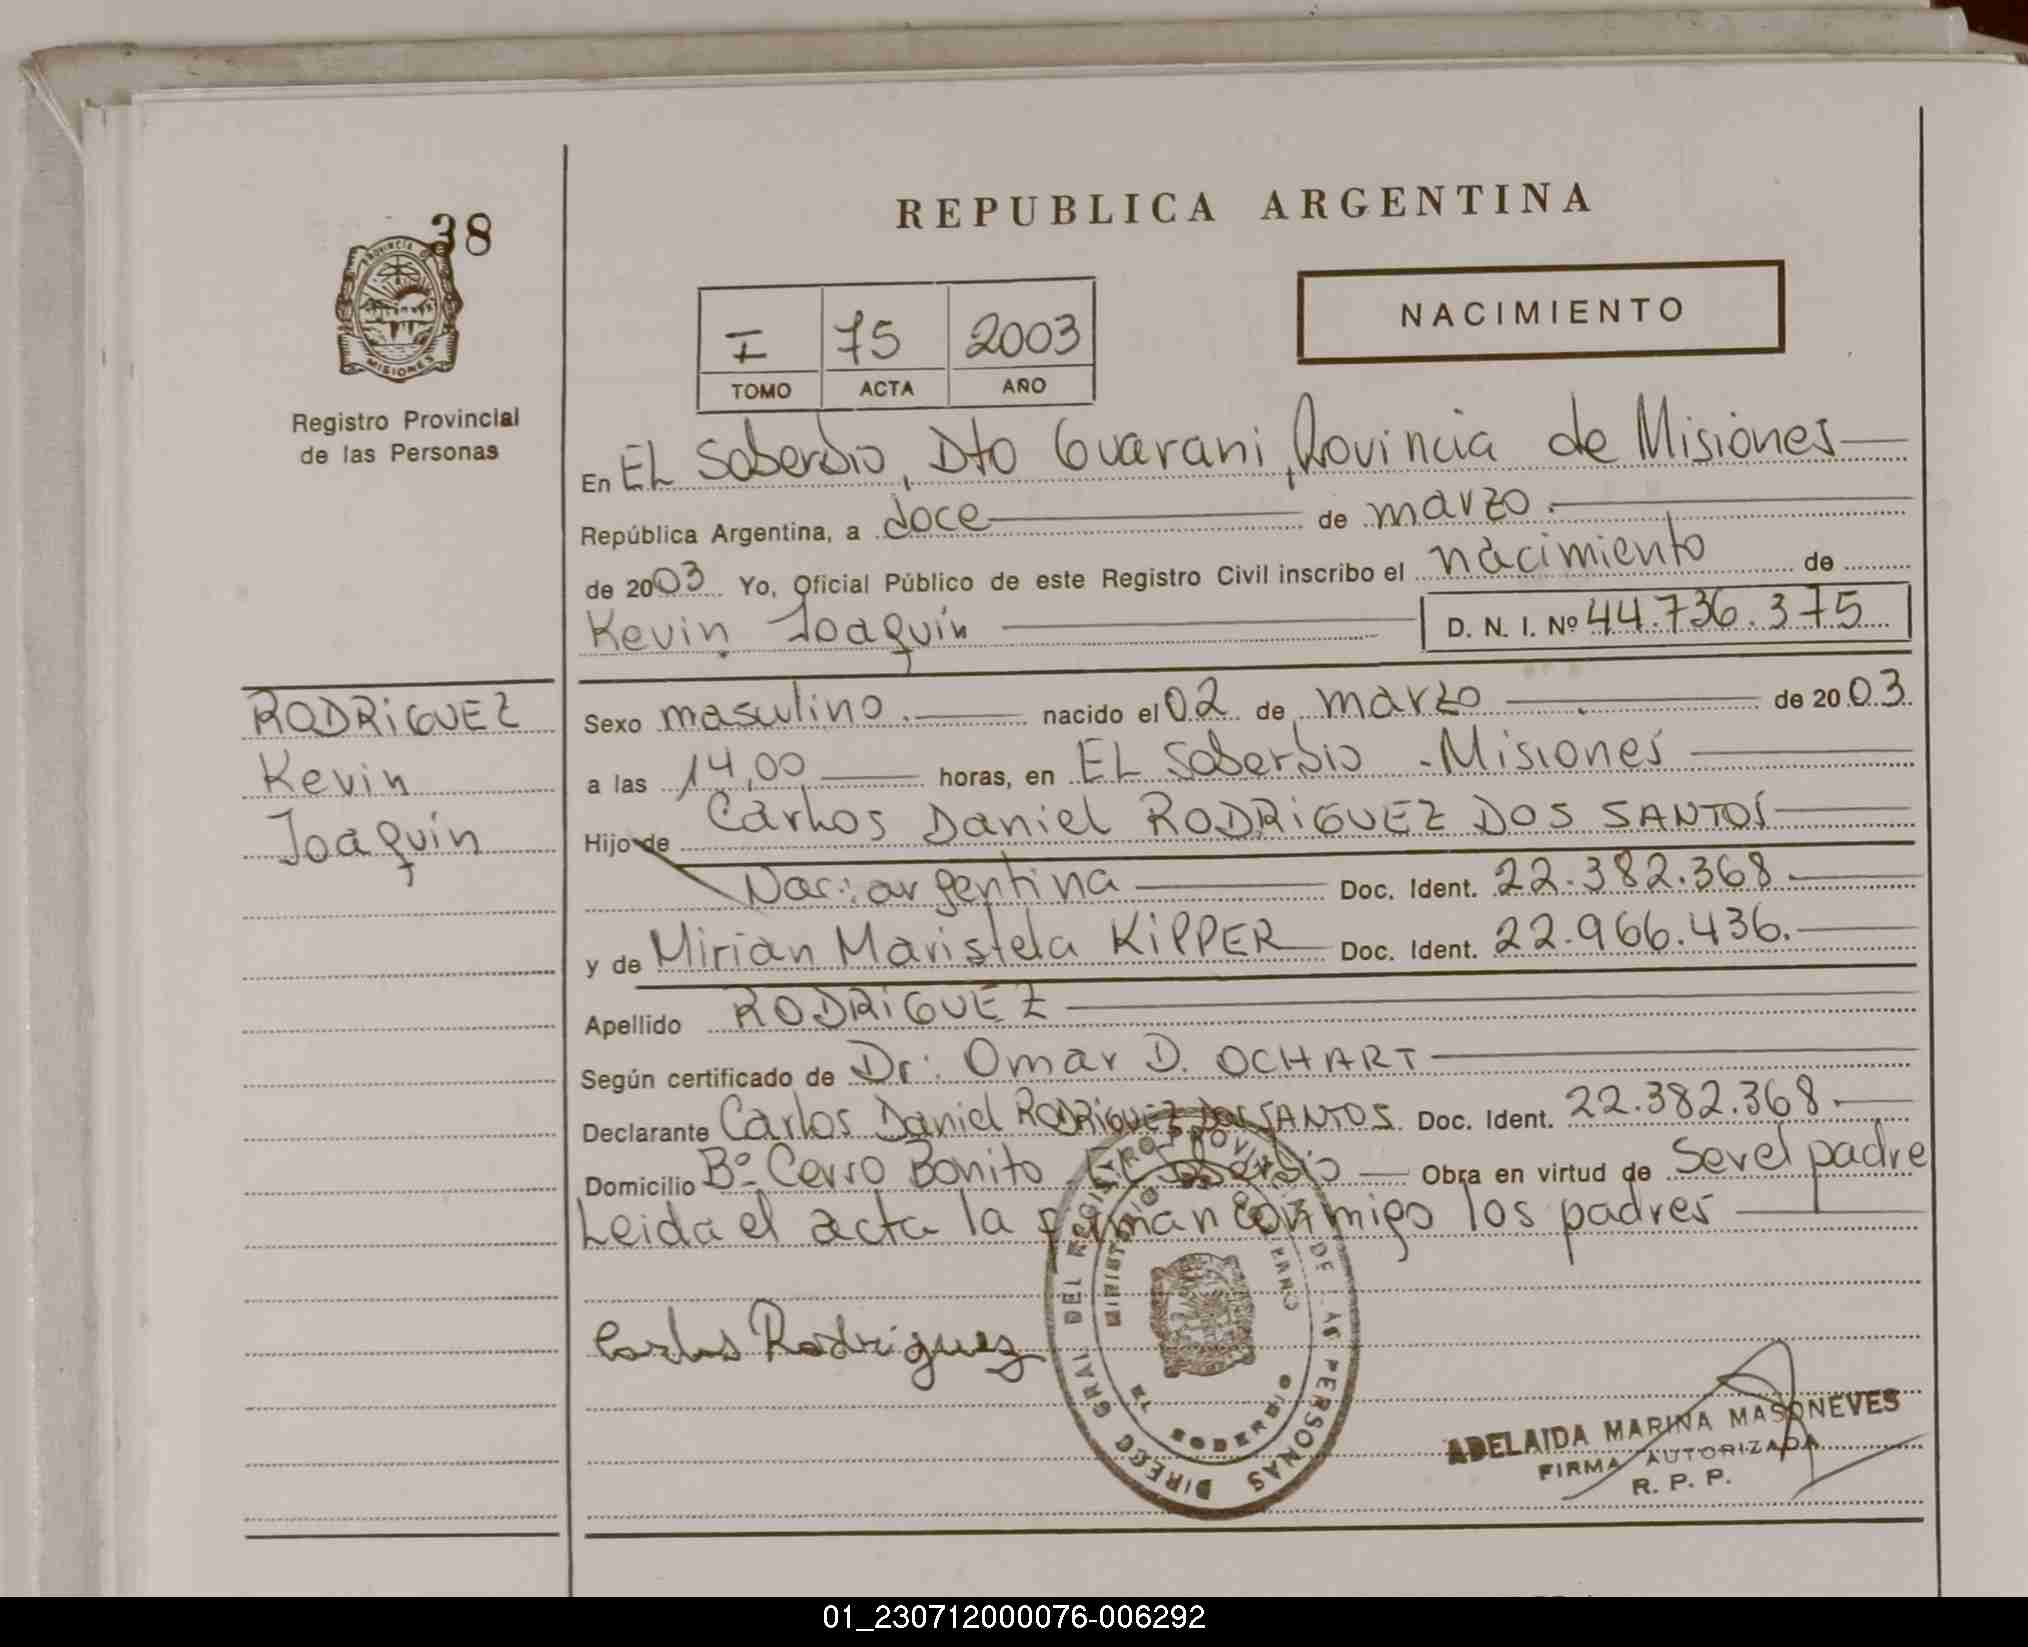 38
PROVINCIA DE
MISIONES
Registro Provincial
de las Personas
REPUBLICA ARGENTINA
I 75 2003
TOMO ACTA AÑO
NACIMIENTO
En EL Soberbio, Dto Guarani, Provincia de Misiones
República Argentina, a doce de marzo.
de 2003 Yo, Oficial Público de este Registro Civil inscribo el nacimiento de
Kevin Joaquín D. N. I. Nº 44.736.375
RODRIGUEZ
Kevin
Joaquín
Sexo masculino. nacido el 02 de marzo de 2003
a las 14,00 horas, en EL Soberbio - Misiones
Hijo de Carlos Daniel RODRIGUEZ DOS SANTOS
Nac: argentina Doc. Ident. 22.382.368.
y de Mirian Maristela KIPPER Doc. Ident. 22.966.436.
Apellido RODRIGUEZ
Según certificado de Dr: Omar D. OCHART
Declarante Carlos Daniel RODRIGUEZ DOS SANTOS. Doc. Ident. 22.382.368.
Domicilio Bº Cerro Bonito EL Soberbio Obra en virtud de Ser el padre
Leida el acta la firman conmigo los padres
Carlos Rodriguez
DIRECC GRAL DEL REGISTRO PROVINCIAL DE LAS PERSONAS
MINISTERIO DE GOBIERNO
EL SOBERBIO
ADELAIDA MARINA MASONEVES
FIRMA AUTORIZADA
R. P. P.
01_230712000076-006292